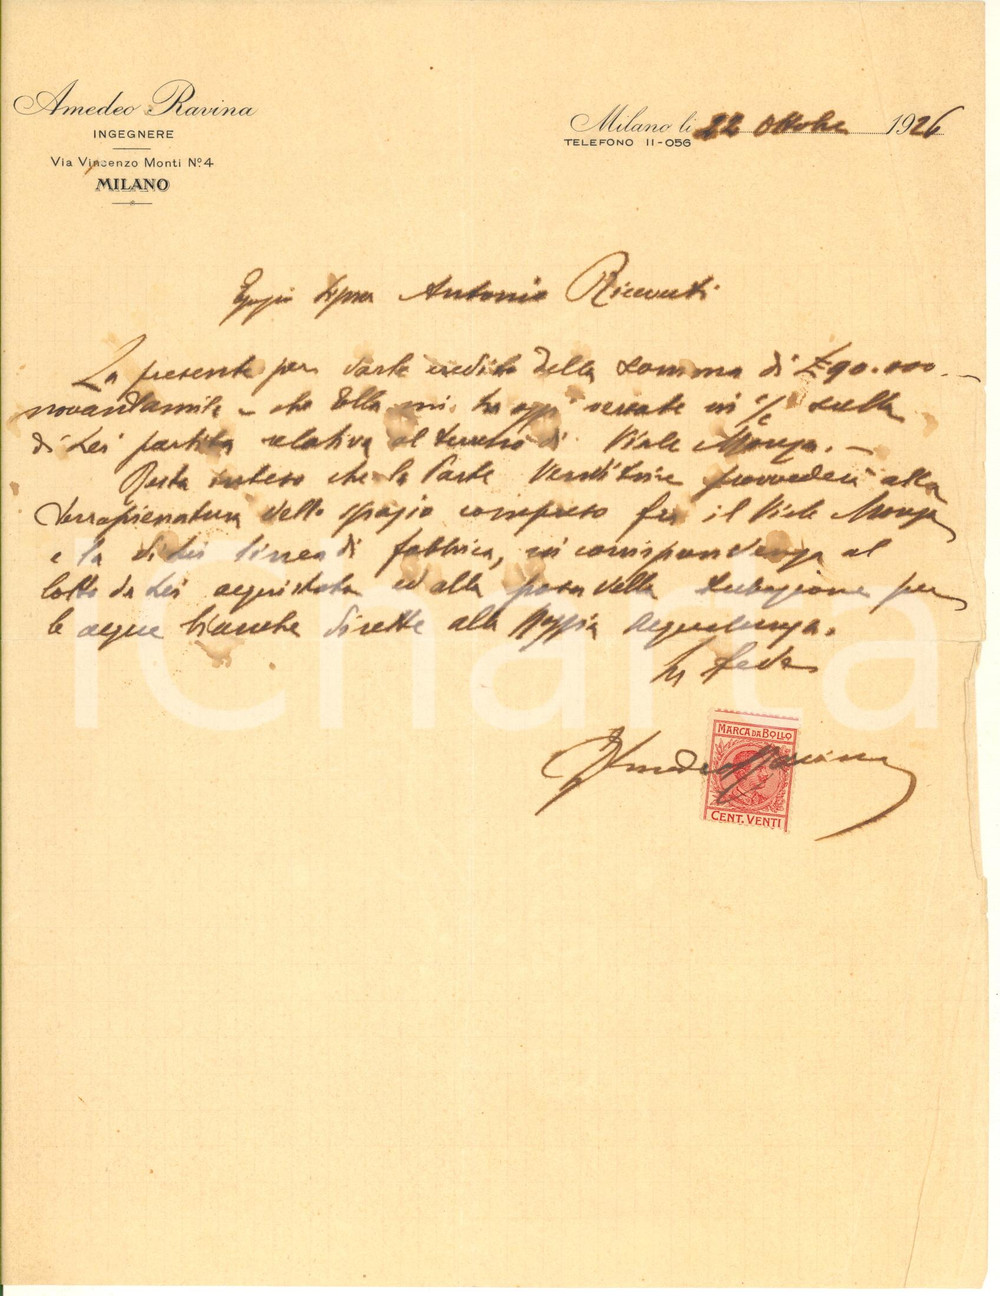 Amedeo Ravina
INGEGNERE
Via Vincenzo Monti Nº 4
MILANO
Milano, li 22 Ottobre 1926
TELEFONO 11-056
Egregio Signor Antonio
La presente per darle credito della somma di £ 90.000.—
novantamila – che Ella mi ha oggi versate in c/c sulla
di Lei partita relativa al terreno di Viale Monza. —
Resta inteso che la Parte Venditrice provvederà alla
terrapienatura dello spazio compreso fra il Viale Monza
e la di Lei linea di fabbrica, in corrispondenza al
lotto da Lei acquistato ed alla posa della tubazione per
le acque bianche dirette alla Roggia Acqualunga.
In fede
Amedeo Ravina
MARCA DA BOLLO
CENT. VENTI
iCharta